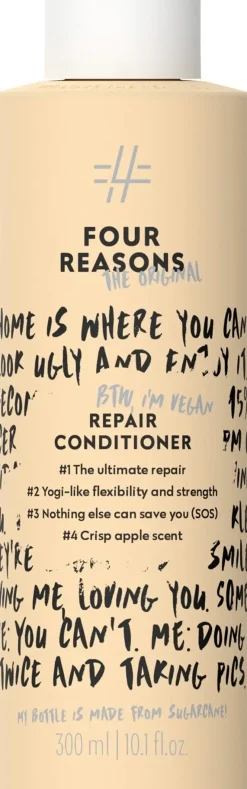 FOUR
REASONS
THE ORIGINAL
HOME IS WHERE YOU CAN
LOOK UGLY AND ENJOY IT
BTW, I'M VEGAN
REPAIR
CONDITIONER
#1 The ultimate repair
#2 Yogi-like flexibility and strength
#3 Nothing else can save you (SOS)
#4 Crisp apple scent
SMILE
ME, LOVING YOU. SOME
YOU CAN'T. ME: DOING
TWICE AND TAKING PICS.
MY BOTTLE IS MADE FROM SUGARCANE!
300 ml | 10.1 fl.oz.